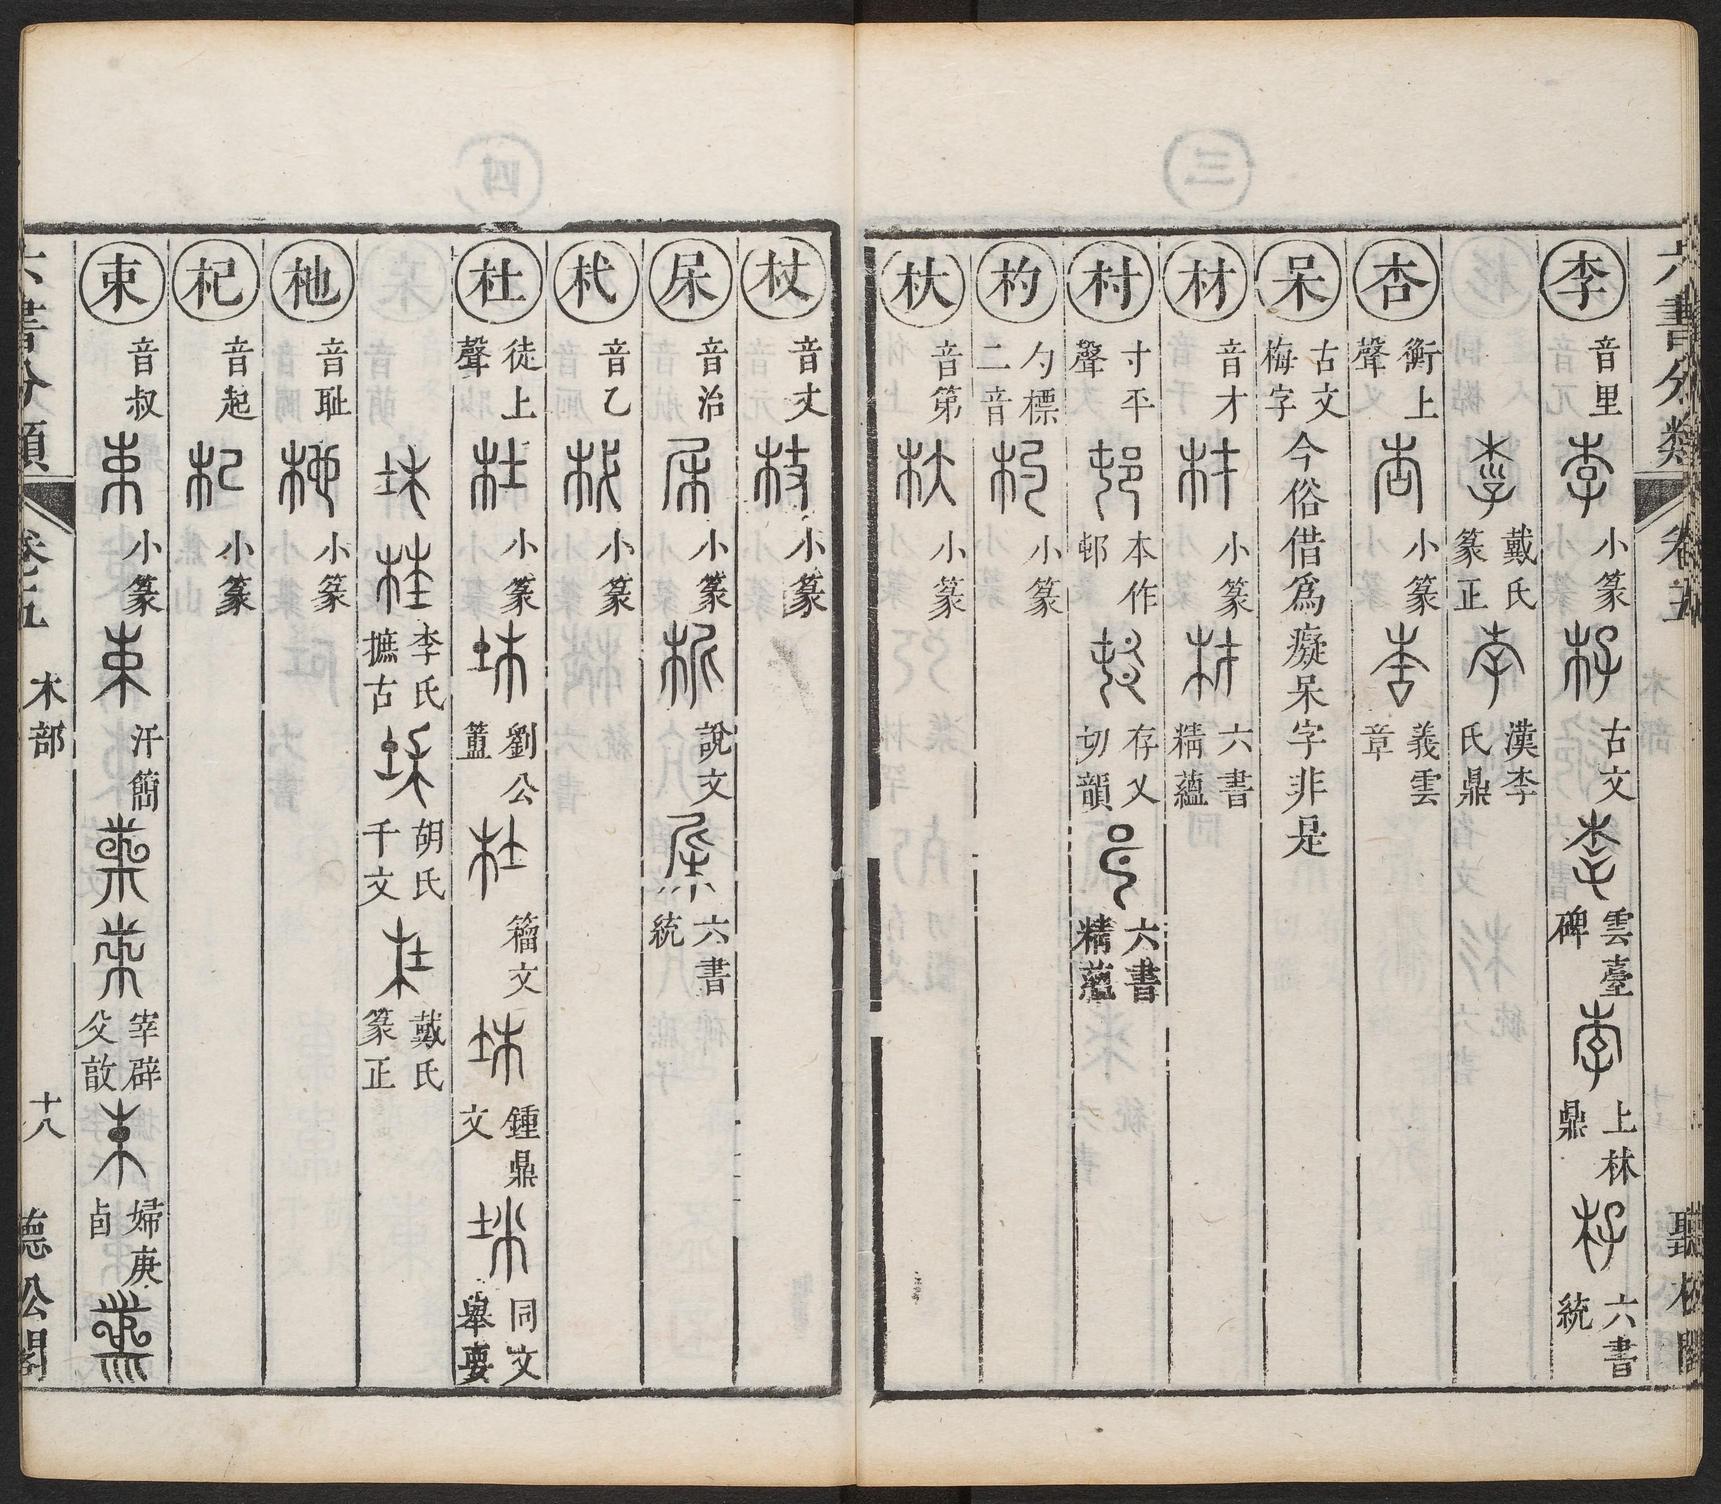 三
六書分類 卷五
聽松閣
李 音里 小篆 古文 雲臺碑 上林鼎 六書統
戴氏篆正 漢李氏鼎
杏 衡上聲 小篆 義雲章
呆 古文梅字 今俗借爲癡呆字非是
材 音才 小篆 六書精蘊
村 寸平聲 本作邨 存乂切韻 六書精蘊
杓 勺標二音 小篆
杕 音第 小篆
四
杖 音丈 小篆
杘 音治 小篆 說文 六書統
杙 音乙 小篆
杜 徒上聲 小篆 劉公簠 籀文 鍾鼎文 同文舉要
李氏摭古 胡氏千文 戴氏篆正
杝 音耻 小篆
杞 音起 小篆
束 音叔 小篆 汗簡 宰辟父敦 婦庚卣
六書分類 卷五 木部 十八
聽松閣